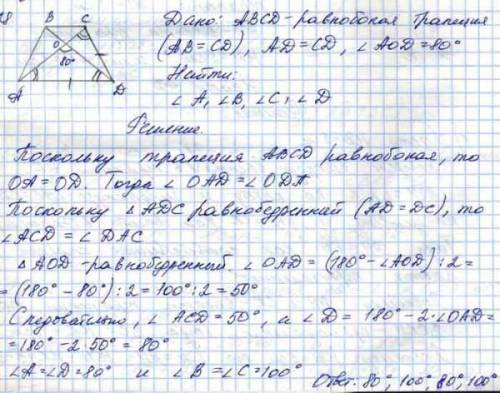 В C
O
80°
А D
Дано: ABCD - равнобокая трапеция
(AB = CD), AD = CD, ∠AOD = 80°
Найти:
∠A, ∠B, ∠C, ∠D
Решение.
Поскольку трапеция ABCD равнобокая, то
OA = OD. Тогда ∠OAD = ∠ODA
Поскольку △ADC равнобедренный (AD = DC), то
∠ACD = ∠DAC
△AOD - равнобедренный. ∠OAD = (180° - ∠AOD) : 2 =
= (180° - 80°) : 2 = 100° : 2 = 50°
Следовательно, ∠ACD = 50°, а ∠D = 180° - 2·∠OAD =
= 180° - 2·50° = 80°
∠A = ∠D = 80° и ∠B = ∠C = 100°
Ответ: 80°; 100°; 80°; 100°